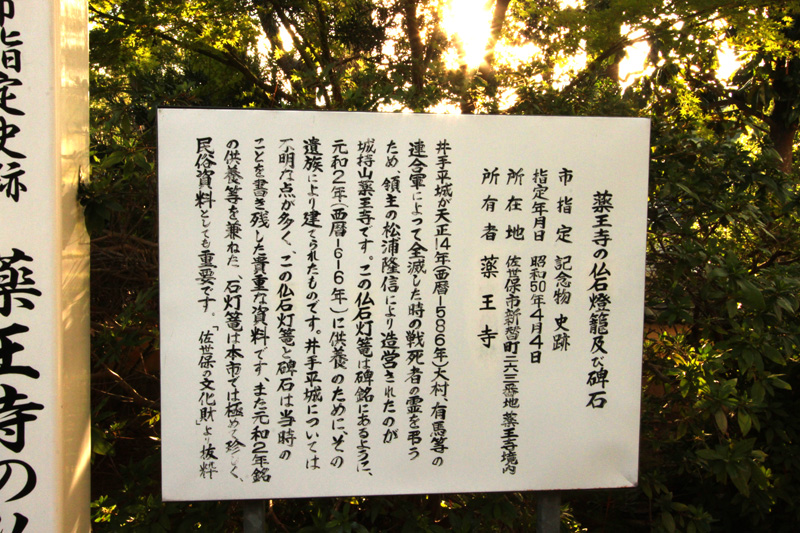 市指定史跡 薬王寺の
薬王寺の仏石燈籠及び碑石
市指定 記念物 史跡
指定年月日 昭和50年4月4日
所在地 佐世保市新替町二六三番地 薬王寺境内
所有者 薬王寺
井手平城が天正14年(西暦1586年)大村、有馬等の
連合軍によって全滅した時の戦死者の霊を弔う
ため、領主の松浦隆信により造営されたのが
城持山薬王寺です。この仏石灯篭は碑銘にあるように、
元和2年(西暦1616年)に供養のために、その
遺族により建てられたものです。井手平城については
不明な点が多く、この仏石灯篭と碑石は当時の
ことを書き残した貴重な資料です、また元和2年銘
の供養等を兼ねた、石灯篭は本市では極めて珍しく、
民俗資料としても重要です。「佐世保の文化財」より抜粋